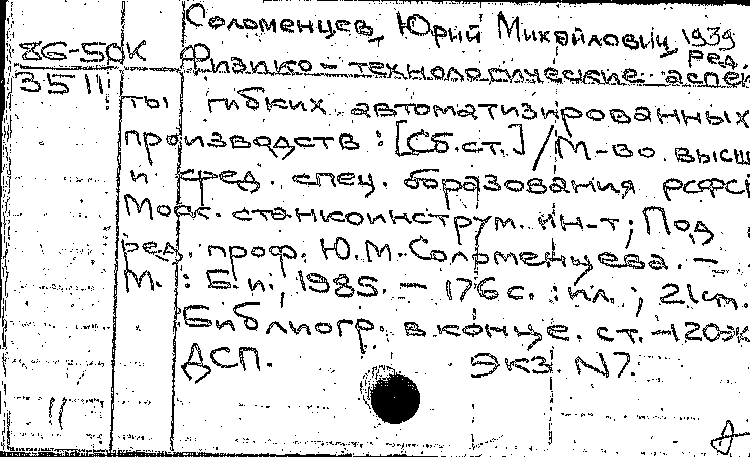 Соломенцев, Юрий Михайлович, 1939
ред.
86-50К Физико-технологические аспек
3511
ты гибких автоматизированных
производств : [Сб.ст.] / М-во высш
и сред. спец. бразования РСФС
Моск. станкоинструм. ин-т; Под
ред. проф. Ю.М.Соломенцева. —
М. : Б.и., 1985. — 176 с. : ил. ; 21 см.
Библиогр. в конце. ст. — 120 эк
ДСП. Экз. N7.
11